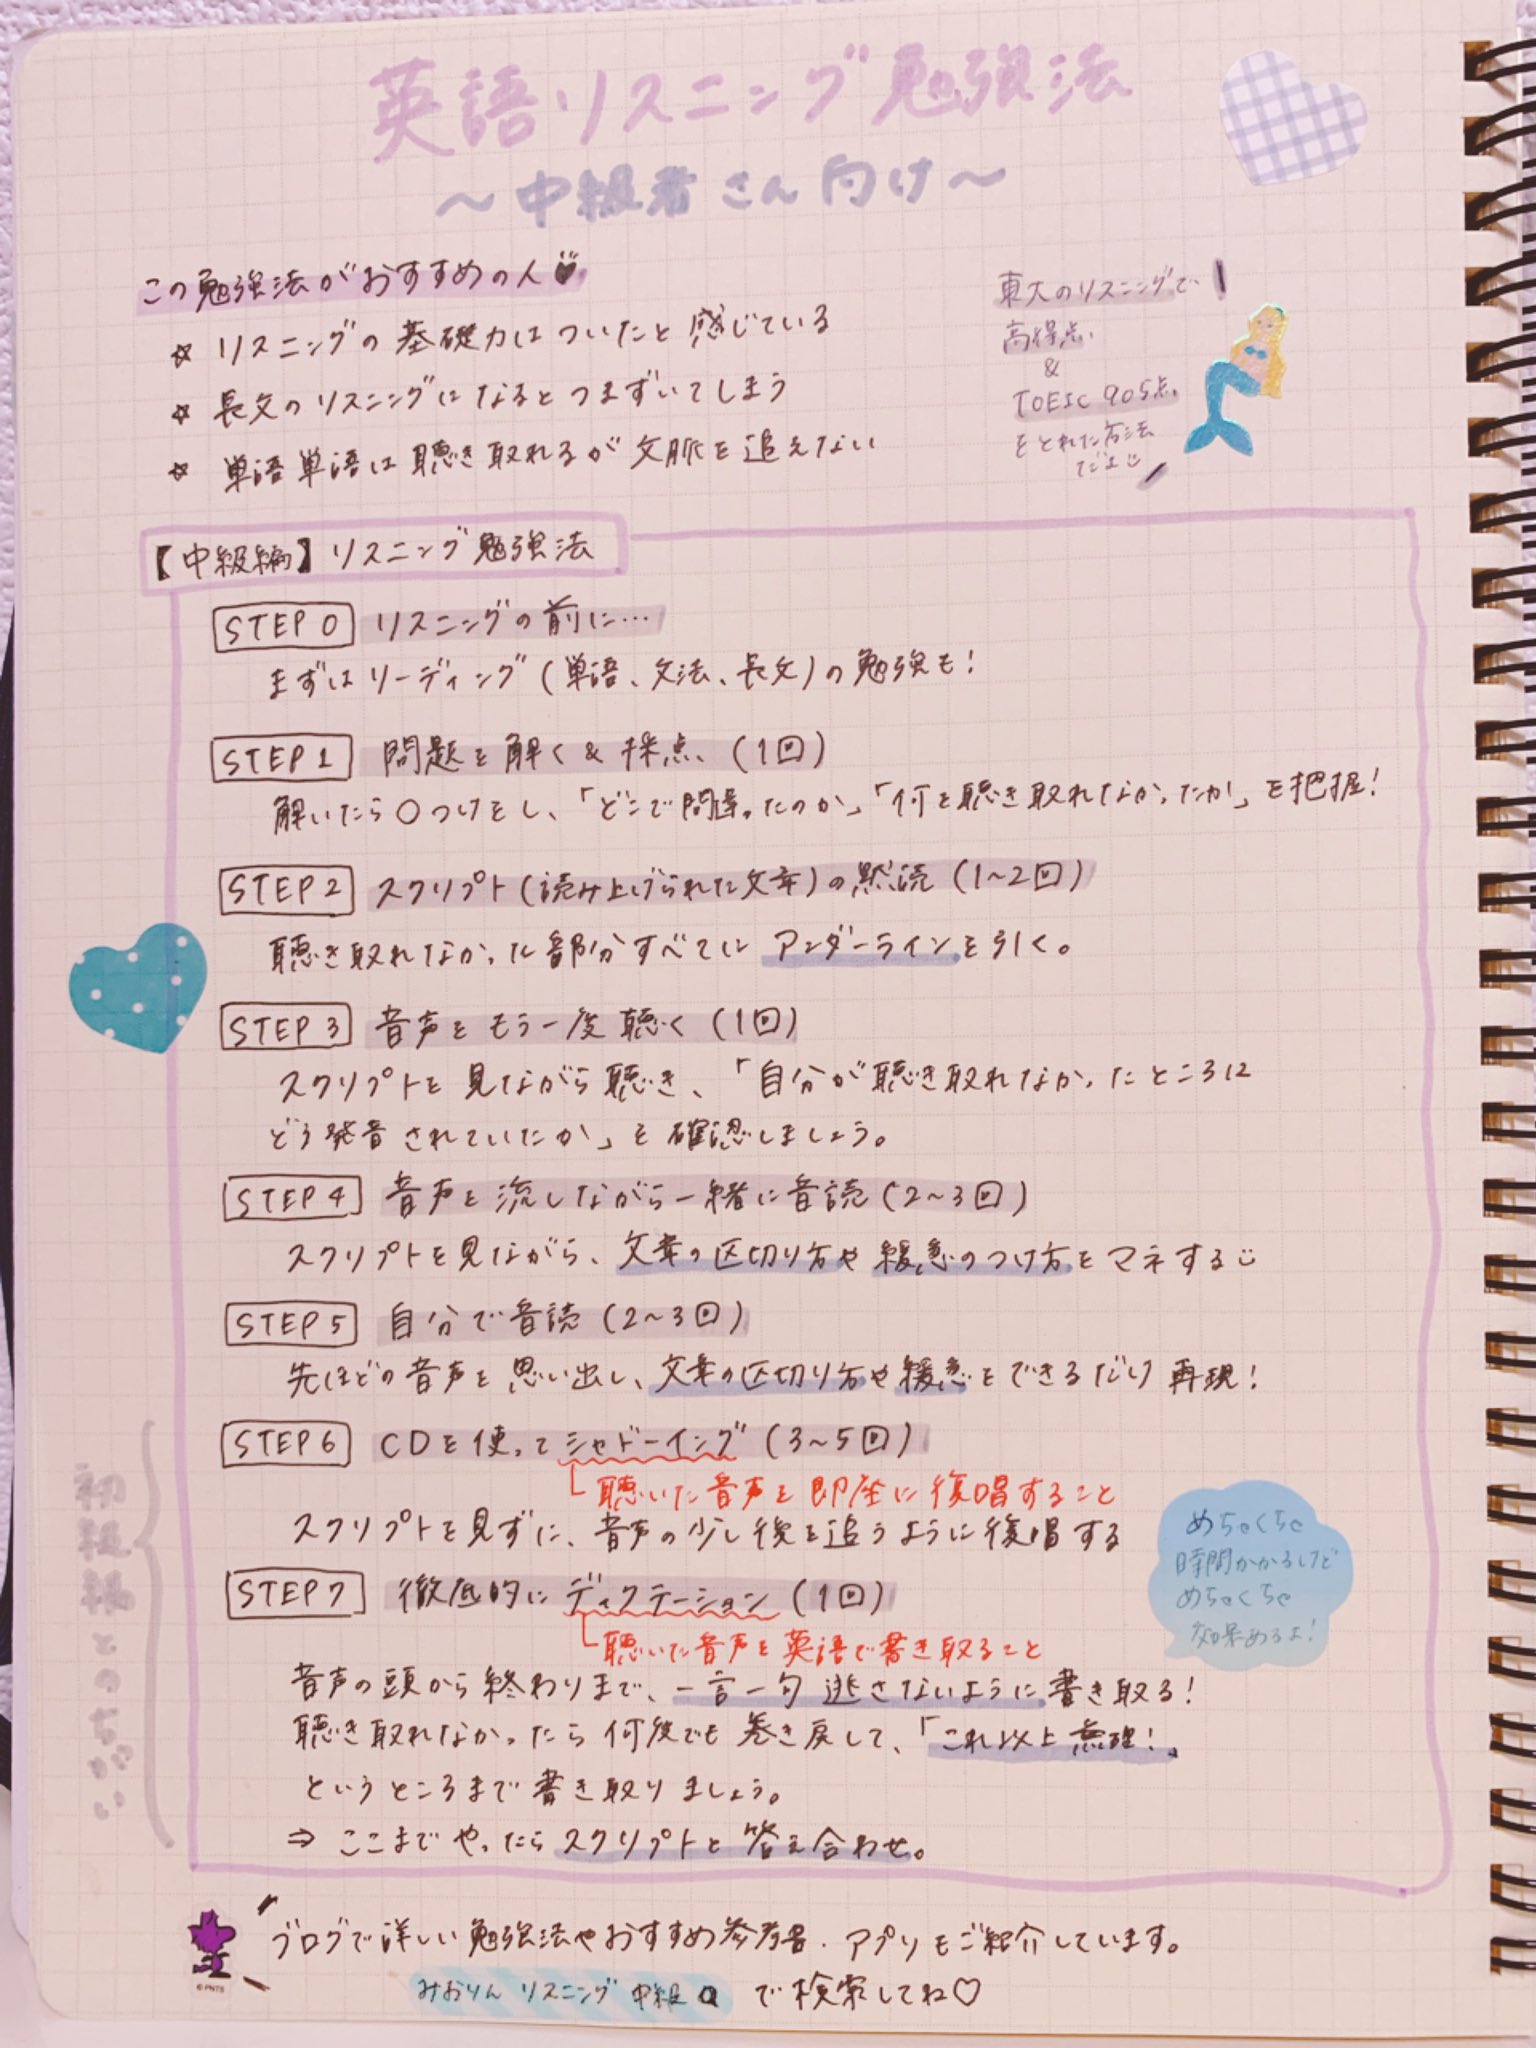 英語リスニング勉強法
～中級者さん向け～
この勉強法がおすすめの人
☆ リスニングの基礎力はついたと感じている
☆ 長文のリスニングになるとつまずいてしまう
☆ 単語単語は聴き取れるが文脈を追えない
東大のリスニングで
高得点
&
TOEIC 905点
をとれた方法
だよ
【中級編】リスニング勉強法
STEP 0 リスニングの前に…
まずはリーディング(単語、文法、長文)の勉強も!
STEP 1 問題を解く&採点(1回)
解いたら○つけをし、「どこで間違ったのか」「何を聴き取れなかったか」を把握!
STEP 2 スクリプト(読み上げられた文章)の黙読(1~2回)
聴き取れなかった部分すべてにアンダーラインを引く。
STEP 3 音声をもう一度聴く(1回)
スクリプトを見ながら聴き、「自分が聴き取れなかったところに
どう発音されていたか」を確認しましょう。
STEP 4 音声を流しながら一緒に音読(2~3回)
スクリプトを見ながら、文章の区切り方や緩急のつけ方をマネする
STEP 5 自分で音読(2~3回)
先ほどの音声を思い出し、文章の区切り方や緩急をできるだけ再現!
STEP 6 CDを使ってシャドーイング(3~5回)
聴いた音声を即座に復唱すること
スクリプトを見ずに、音声の少し後を追うように復唱する
STEP 7 徹底的にディクテーション(1回)
聴いた音声を英語で書き取ること
音声の頭から終わりまで、一言一句逃さないように書き取る!
聴き取れなかったら何度でも巻き戻して、「これ以上無理!」
というところまで書き取りましょう。
⇒ ここまでやったらスクリプトと答え合わせ。
めちゃくちゃ
時間かかるけど
めちゃくちゃ
効果あるよ!
初級編とのちがい
ブログで詳しい勉強法やおすすめ参考書・アプリもご紹介しています。
みおりん リスニング 中級 で検索してね♡
©PNTS